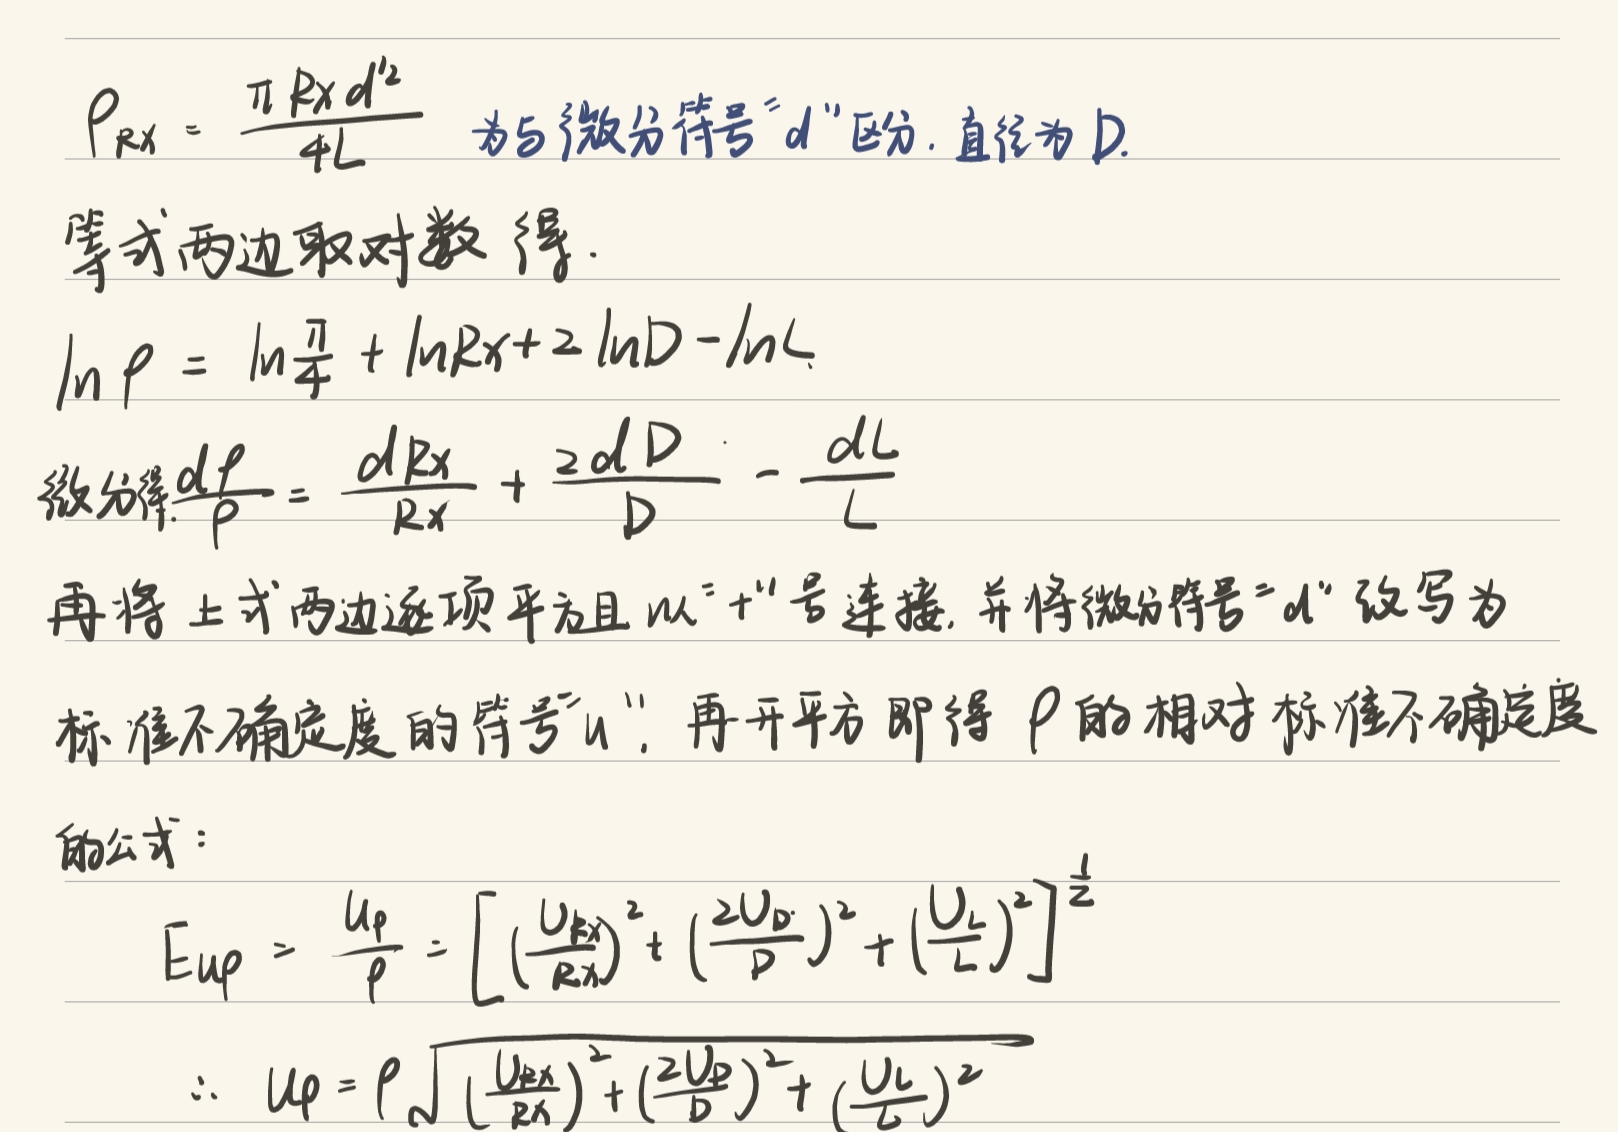 ρ_RX = πRxd'²/4L 为与微分符号"d"区分. 直径为D.
等式两边取对数得.
lnρ = ln π/4 + lnRx + 2lnD - lnL.
微分得. dρ/ρ = dRx/Rx + 2dD/D - dL/L
再将上式两边逐项平方且以"+"号连接, 并将微分符号"d"改写为
标准不确定度的符号"u", 再开平方即得ρ的相对标准不确定度
的公式:
E_uρ = u_ρ/ρ = [(U_Rx/Rx)² + (2U_D/D)² + (U_L/L)²]^½
∴ u_ρ = ρ√((U_RX/RX)² + (2U_D/D)² + (U_L/L)²)